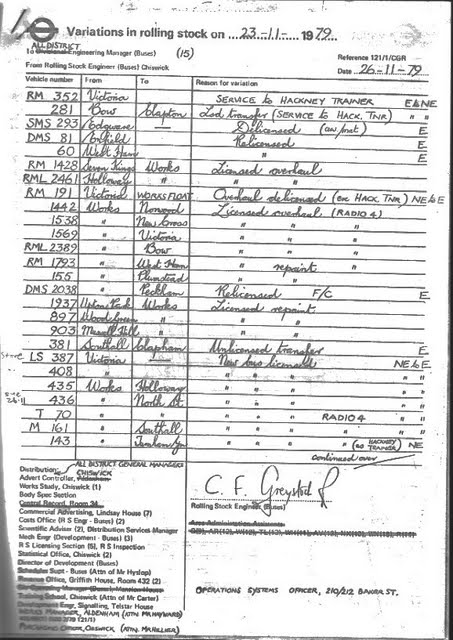 Variations in rolling stock on 23-11- 1979
ALL DISTRICT
to Divisional Engineering Manager (Buses) (15)
From Rolling Stock Engineer (Buses) Chiswick
Reference 121/1/CGR
Date 26-11-79
Vehicle number From To Reason for variation
RM 352 Victoria SERVICE TO HACKNEY TRAINER E&NE
281 Bow Clapton Lsd transfer (SERVICE TO HACK. TNR) " "
SMS 293 Edgware — Delicensed E
DMS 81 Enfield Relicensed E
60 West Ham " E
RM 1428 Seven Kings Works Licensed overhaul
RML 2461 Holloway " " "
RM 191 Victoria WORKS FLOAT Overhaul delicensed (ex HACK. TNR) NE&E
1442 Works Norwood Licensed overhaul (RADIO 4)
1538 " New Cross " "
1569 " Victoria " "
RML 2389 " Bow " "
RM 1793 " West Ham " repaint "
155 " Plumstead " " "
DMS 2038 " Peckham Relicensed F/C E
1937 Upton Park Works Licensed repaint
897 Wood Green " " "
903 Muswell Hill " " "
381 Southall Clapham Unlicensed transfer E
LS 387 Victoria — New bus licensed NE&E
408 " " " " " "
435 Works Holloway " " " " "
436 " North St. " " " " "
T 70 " " " " " RADIO 4 " "
M 161 " Southall " " " " "
143 " " " " (as HACKNEY TRAINER) NE
continued over
Distribution: ALL DISTRICT GENERAL MANAGERS
CHISWICK
Advert Controller, Aldenham
Works Study, Chiswick (1)
Body Spec Section
Central Record, Room 34
Commercial Advertising, Lindsay House (7)
Costs Office (R S Engr - Buses) (2)
Scientific Adviser (2), Distribution Services Manager
Mech Engr (Development - Buses) (3)
R S Licensing Section (5), R S Inspection
Statistical Office, Chiswick (2)
Director of Development (Buses)
Schedules Supt - Buses (Attn of Mr Hyslop)
Revenue Office, Griffith House, Room 432 (2)
Training School, Chiswick (Attn of Mr Carter)
Development Engr, Signalling, Telstar House
WORKS MANAGER, ALDENHAM (ATTN MR. HAYWARD)
PURCHASING OFFICER, CHISWICK (ATTN. MR. HILLIER)
C. F. Greystock
Rolling Stock Engineer (Buses)
Area Administration Assistants
OPERATIONS SYSTEMS OFFICER, 210/212 BAKER ST.